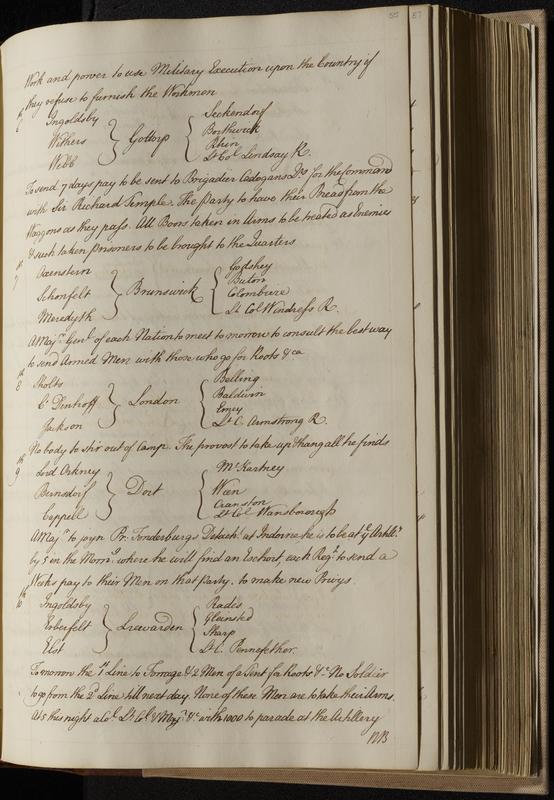 55 57
Work and power to use Military Execution upon the Country if
they refuse to furnish the Workmen
Ingoldsby Seckendorf
Withers Gottorp Borthwick
Webb Lt Col Lindsay R.
To send 7 days pay to be sent to Brigadier Cadogans for the Command
with Sir Richard Temple. The Party to have their Bread from the
Waggons as they pass. All Boors taken in Arms to be treated as Enemies
& such taken Prisoners to be brought to the Quarters
7th Oxenstern Godshey
Schonfelt Brunswick Buton
Meredyth Colombiere
Lt Col Windress R.
A Majr Genl of each Nation to meet to morrow to consult the best way
to send Armed Men with those who go for Roots &ca
8th Sholts Belling
Ct Denhoff London Baldwin
Jackson Emey
Lt C. Armstrong R.
No body to stir out of Camp. The provost to take up & hang all he finds
9th Lord Orkney McKartney
Bernsdorf Dort Wien
Keppell Cranston
Lt Col Wansborough
A Majr to joyn Pr. Tonderburgs Detacht at Indoirne he is to be at ye Artillry
by 5 in the Morng where he will find an Eschort, each Regt to send a
Weeks pay to their Men on that party. to make new Privys
10th Ingoldsby Rades
Erberfelt Leewarden Gleinsted
Elst Sharp
Lt C. Pennefether.
To morrow the 1st Line to Forrage & 2 Men of a Tent for Roots &c. No Soldier
to go from the 2d Line till next day. None of these Men are to take their Arms.
At 5 this night a Col. Lt Col & Majr &c with 1000 to parade at the Artillery